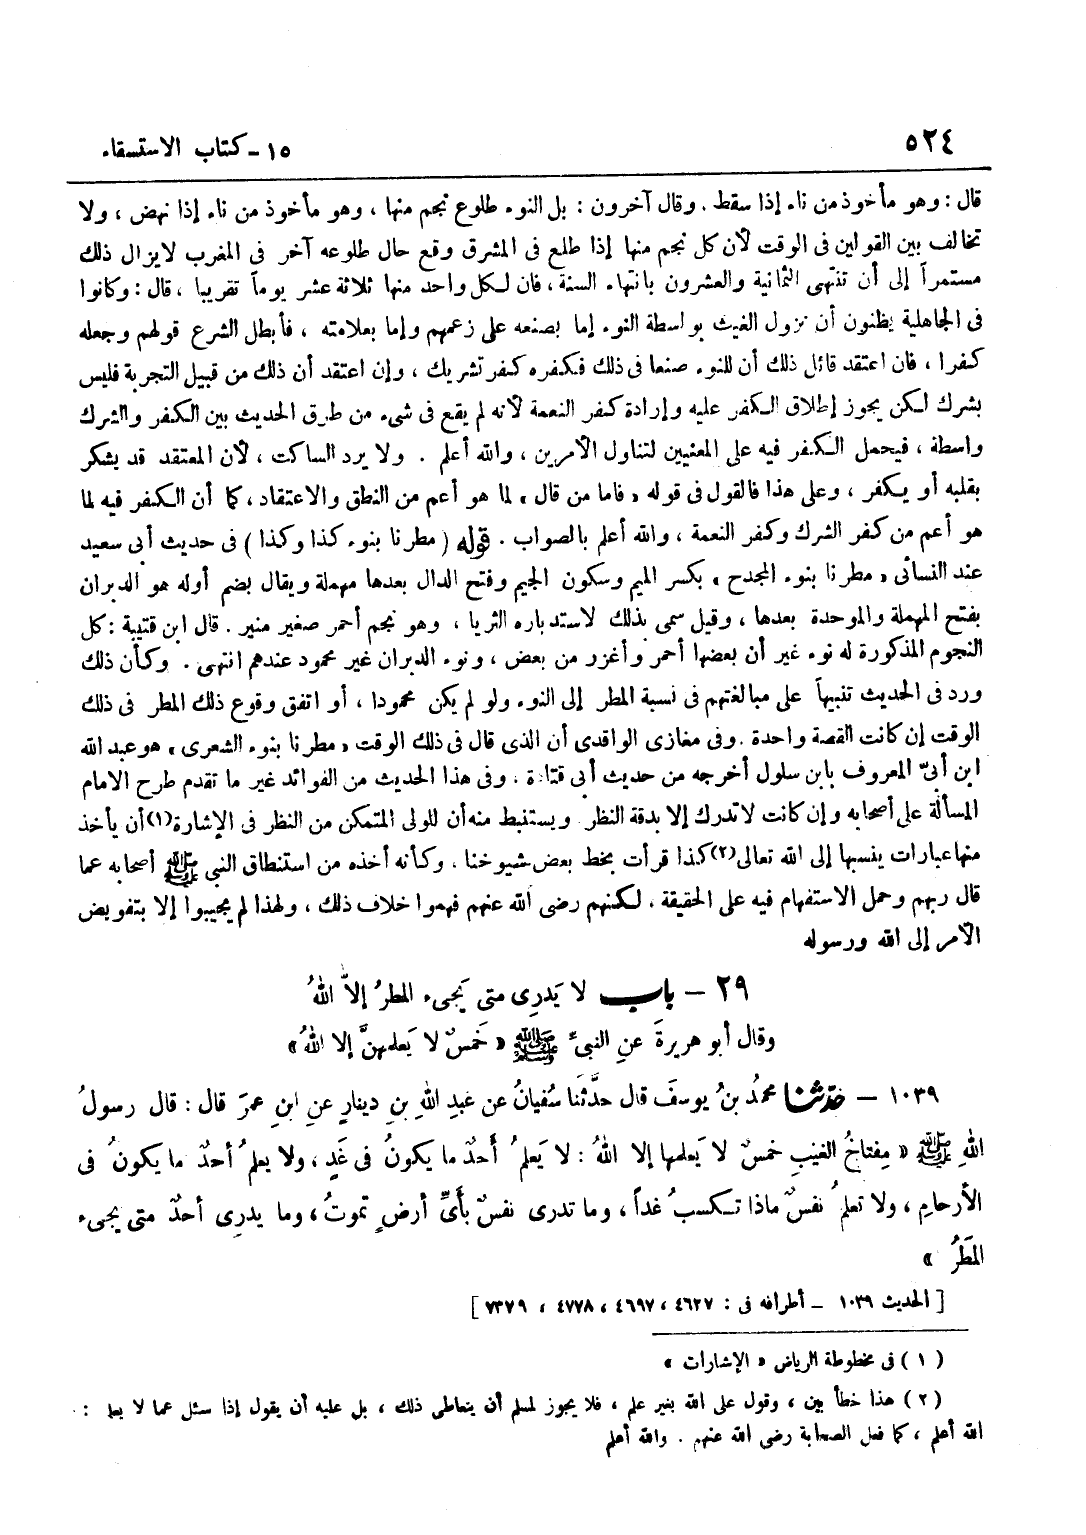 ٥٢٤
١٥ - كتاب الاستسقاء
قال : وهو مأخوذ من ناء إذا سقط . وقال آخرون : بل النوء طلوع نجم منها ، وهو مأخوذ من ناء إذا نهض ، ولا
تخالف بين القولين فى الوقت لأن كل نجم منها إذا طلع فى المشرق وقع حال طلوعه آخر فى المغرب لايزال ذلك
مستمراً إلى أن تنتهى الثمانية والعشرون بانتهاء السنة ، فان لكل واحد منها ثلاثة عشر يوماً تقريبا ، قال : وكانوا
فى الجاهلية يظنون أن نزول الغيث بواسطة النوء إما بصنعه على زعمهم وإما بعلامته ، فأبطل الشرع قولهم وجعله
كفرا ، فان اعتقد قائل ذلك أن للنوء صنعا فى ذلك فكفره كفر تشريك ، وإن اعتقد أن ذلك من قبيل التجربة فليس
بشرك لكن يجوز إطلاق الكفر عليه وإرادة كفر النعمة لأنه لم يقع فى شىء من طرق الحديث بين الكفر والشرك
واسطة ، فيحمل الكفر فيه على المعنيين لتناول الأمرين ، والله أعلم . ولا يرد الساكت ، لأن المعتقد قد يشكر
بقلبه أو يكفر ، وعلى هذا فالقول فى قوله « فاما من قال » لما هو أعم من النطق والاعتقاد ، كما أن الكفر فيه لما
هو أعم من كفر الشرك وكفر النعمة ، والله أعلم بالصواب . قوله ( مطرنا بنوء كذا وكذا ) فى حديث أبى سعيد
عند النسائى « مطرنا بنوء المجدح » بكسر الميم وسكون الجيم وفتح الدال بعدها مهملة ويقال بضم أوله هو الدبران
بفتح المهملة والموحدة بعدها ، وقيل سمى بذلك لاستدباره الثريا ، وهو نجم أحمر صغير منير . قال ابن قتيبة : كل
النجوم المذكورة له نوء غير أن بعضها أحمر وأغزر من بعض ، ونوء الدبران غير محمود عندهم انتهى . وكأن ذلك
ورد فى الحديث تنبيهاً على مبالغتهم فى نسبة المطر إلى النوء ولو لم يكن محمودا ، أو اتفق وقوع ذلك المطر فى ذلك
الوقت إن كانت القصة واحدة . وفى مغازى الواقدى أن الذى قال فى ذلك الوقت « مطرنا بنوء الشعرى » هو عبد الله
ابن أبىّ المعروف بابن سلول أخرجه من حديث أبى قتادة . وفى هذا الحديث من الفوائد غير ما تقدم طرح الامام
المسألة على أصحابه وإن كانت لاتدرك إلا بدقة النظر . ويستنبط منه أن للولى المتمكن من النظر فى الإشارة(١) أن يأخذ
منها عبارات ينسبها إلى الله تعالى(٢) كذا قرأت بخط بعض شيوخنا ، وكأنه أخذه من استنطاق النبى ﷺ أصحابه عما
قال ربهم وحمل الاستفهام فيه على الحقيقة ، لكنهم رضى الله عنهم فهموا خلاف ذلك ، ولهذا لم يجيبوا إلا بتفويض
الأمر إلى الله ورسوله
٢٩ - باب لا يَدرِى متى يَجىء المطرُ إلاَّ اللهُ
وقال أبو هريرةَ عنِ النبىِّ ﷺ « خَمسٌ لا يَعلمهنَّ إلا اللهُ »
١٠٣٩ - حَدّثنا محمدُ بنُ يوسفَ قال حدَّثَنا سُفيانُ عن عبدِ اللهِ بنِ دينارٍ عنِ ابنِ عمرَ قال : قال رسولُ
اللهِ ﷺ « مِفتاحُ الغيبِ خمسٌ لا يَعلمها إلا اللهُ : لا يَعلمُ أحَدٌ ما يكونُ فى غَدٍ ، ولا يعلمُ أحدٌ ما يكونُ فى
الأرحامِ ، ولا تعلمُ نفسٌ ماذا تكسبُ غداً ، وما تدرى نفسٌ بأىِّ أرضٍ تموتُ ، وما يدرِى أحدٌ متى يجىء
المَطَرُ »
[ الحديث ١٠٣٩ - أطرافه فى : ٤٦٢٧ ، ٤٦٩٧ ، ٤٧٧٨ ، ٧٣٧٩ ]
( ١ ) فى مخطوطة الرياض « الإشارات »
( ٢ ) هذا خطأ بين ، وقول على الله بغير علم ، فلا يجوز لمسلم أن يتعاطى ذلك ، بل عليه أن يقول إذا سئل عما لا يعلم :
الله أعلم ، كما فعل الصحابة رضى الله عنهم . والله أعلم